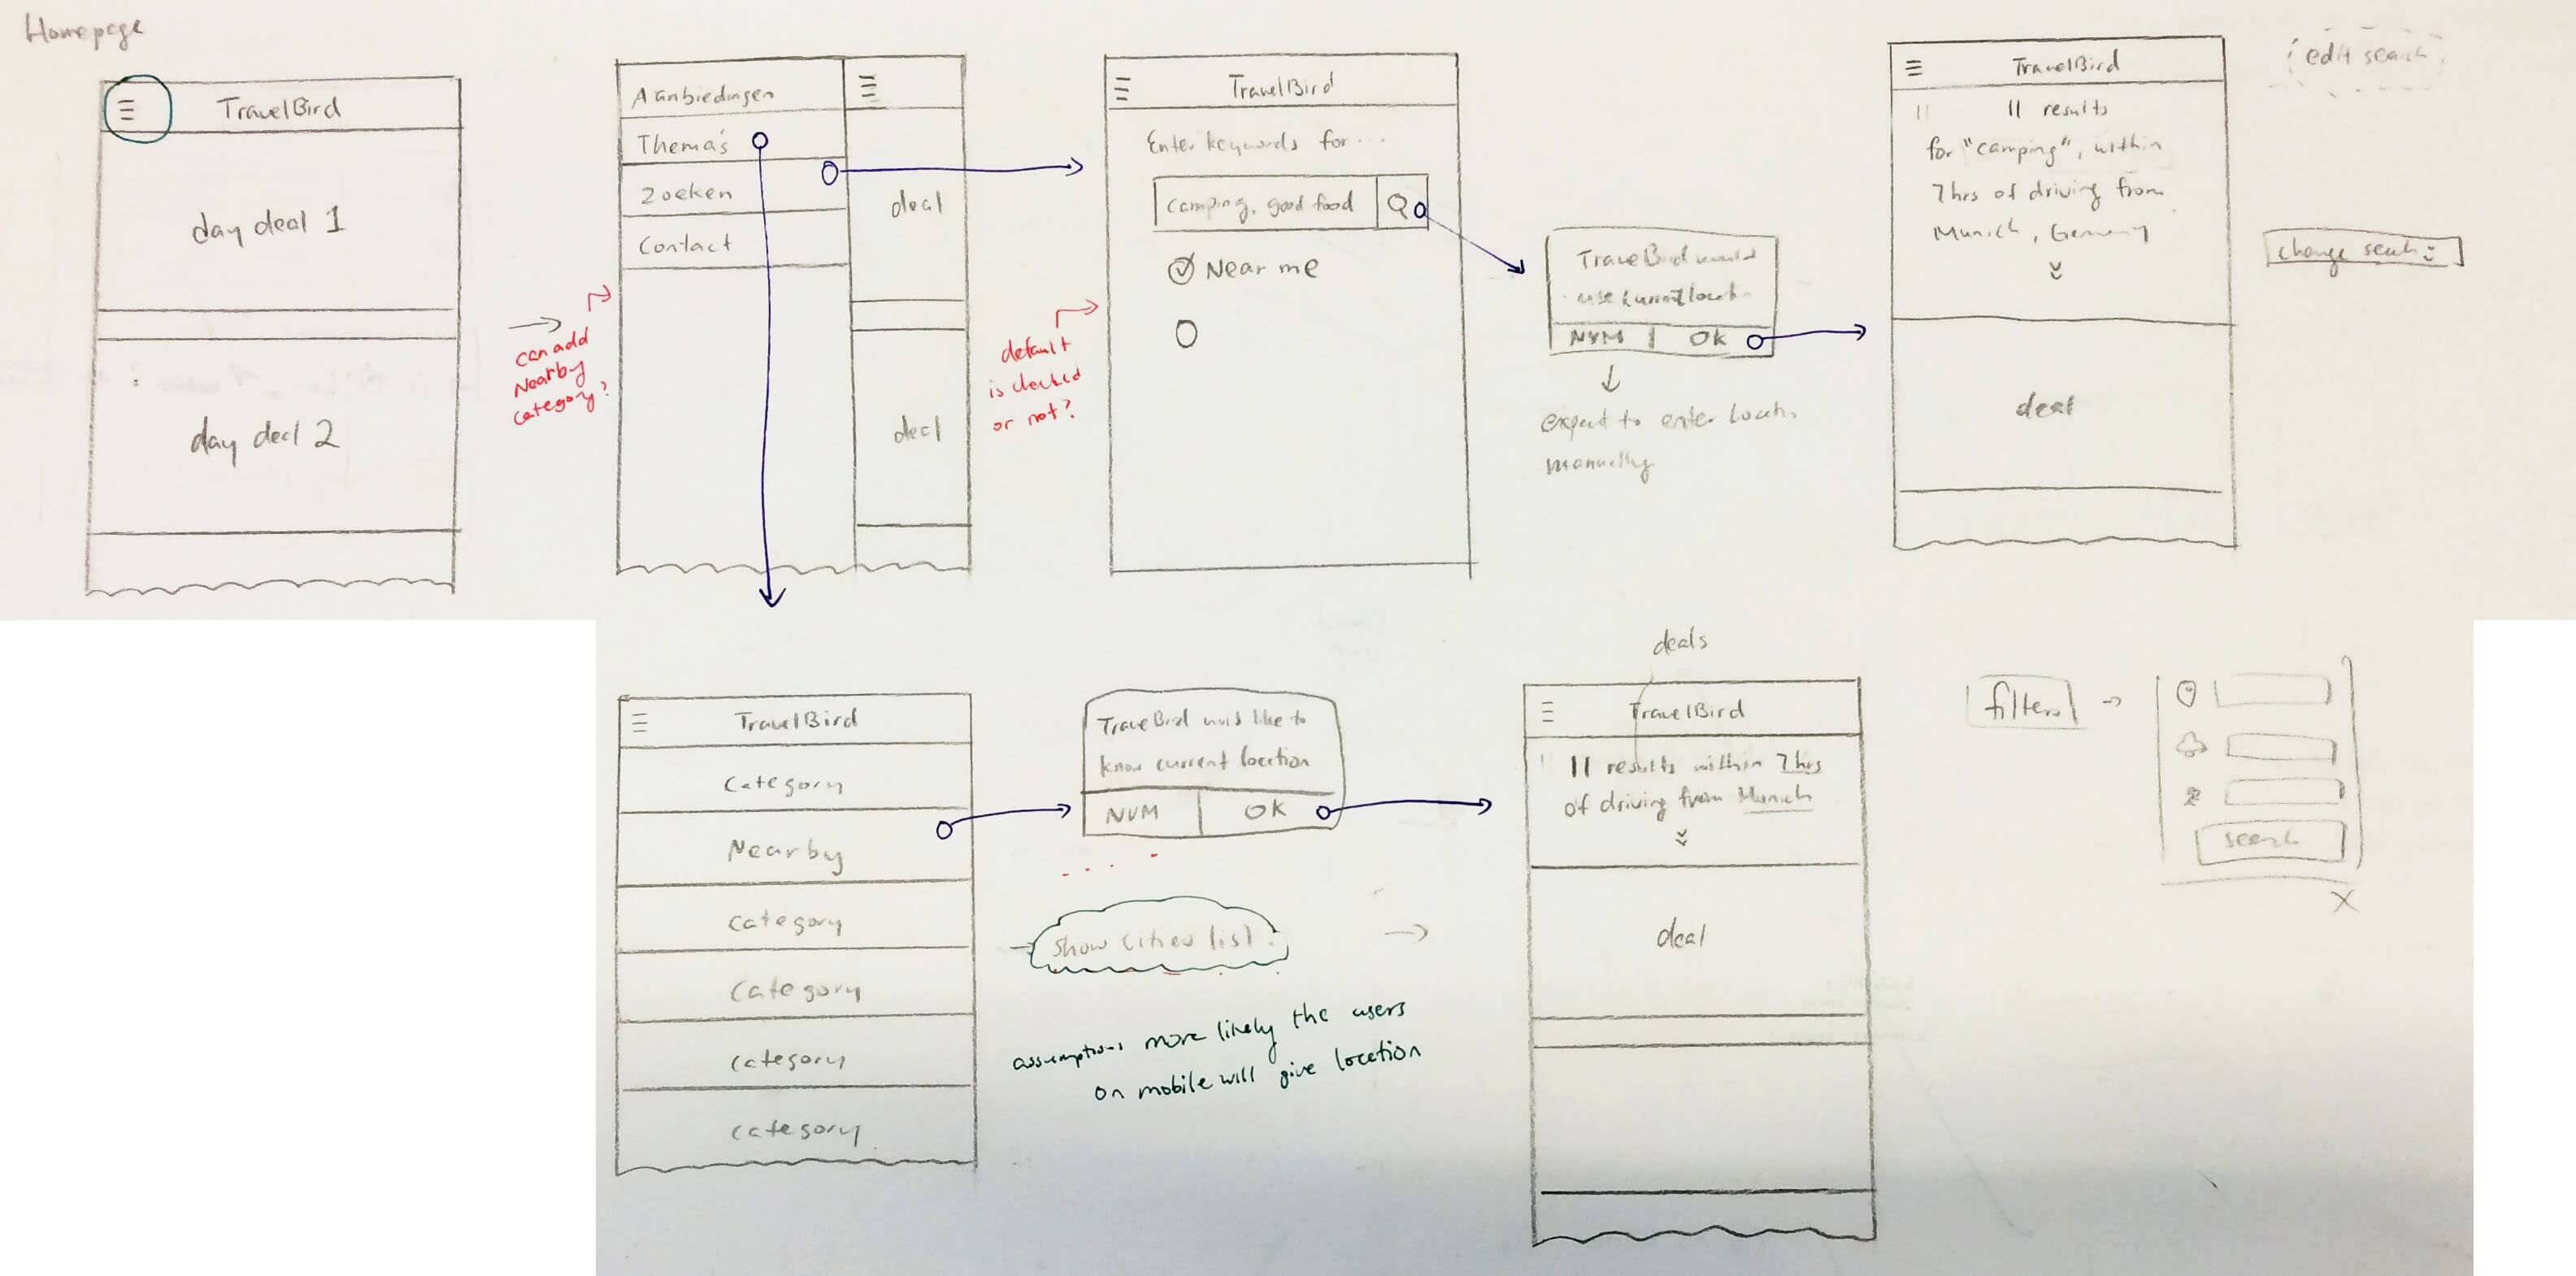 Homepage
TravelBird
day deal 1
day deal 2
can add
Nearby
category?
Aanbiedingen
Thema's
Zoeken
Contact
deal
deal
default
is checked
or not?
TravelBird
Enter keywords for ...
camping, good food
Near me
TravelBird would
use current locat
NVM
OK
expect to enter locatn
manually
TravelBird
11 results
for "camping", within
7hrs of driving from
Munich, Germany
deal
edit search
change search
TravelBird
Category
Nearby
category
category
category
category
TravelBird like to
know current location
NVM
OK
show cities list
assumptions more likely the users
on mobile will give location
deals
TravelBird
11 results within 7hrs
of driving from Munich
deal
filters
search
X